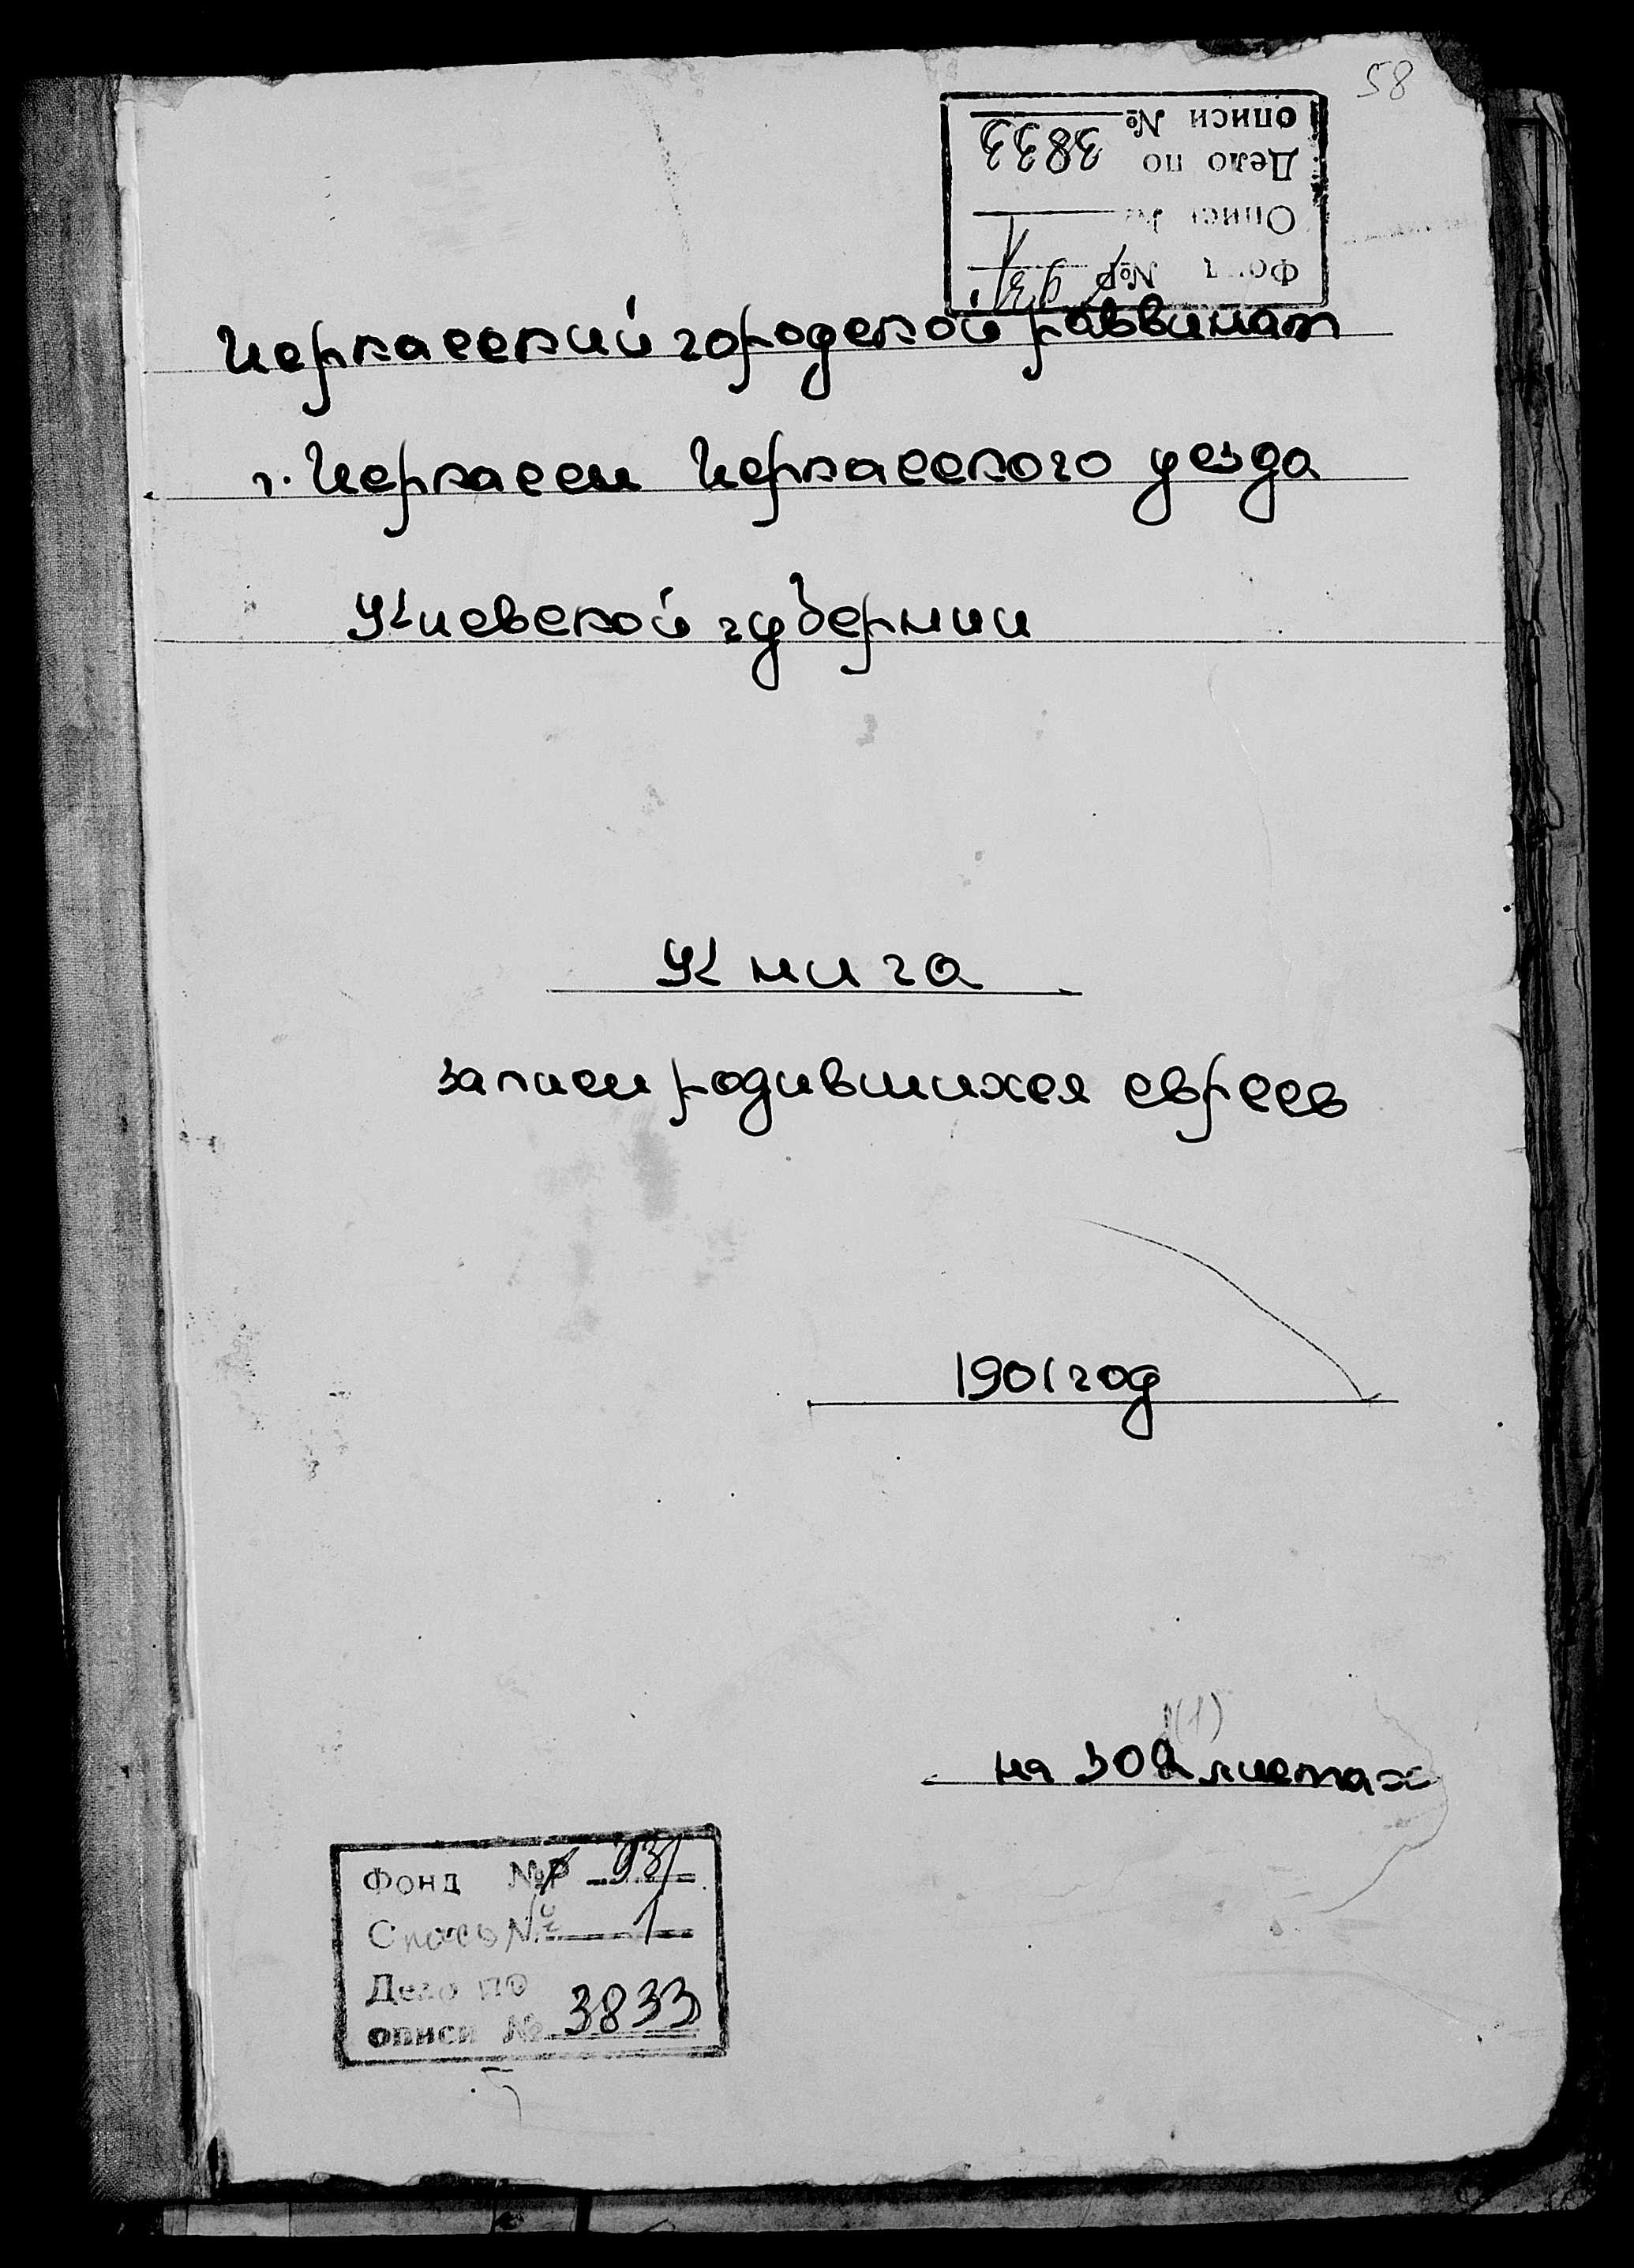 58
описи №
Дело по 3833
Опись № 1
Фонд № 931
Черкасский городской раввинат
г. Черкассы Черкасского уезда
Киевской губернии
Книга
записи родившихся евреев
1901 год
(1)
на 302 листах
Фонд № 931
Опись № 1
Дело по
описи № 3833